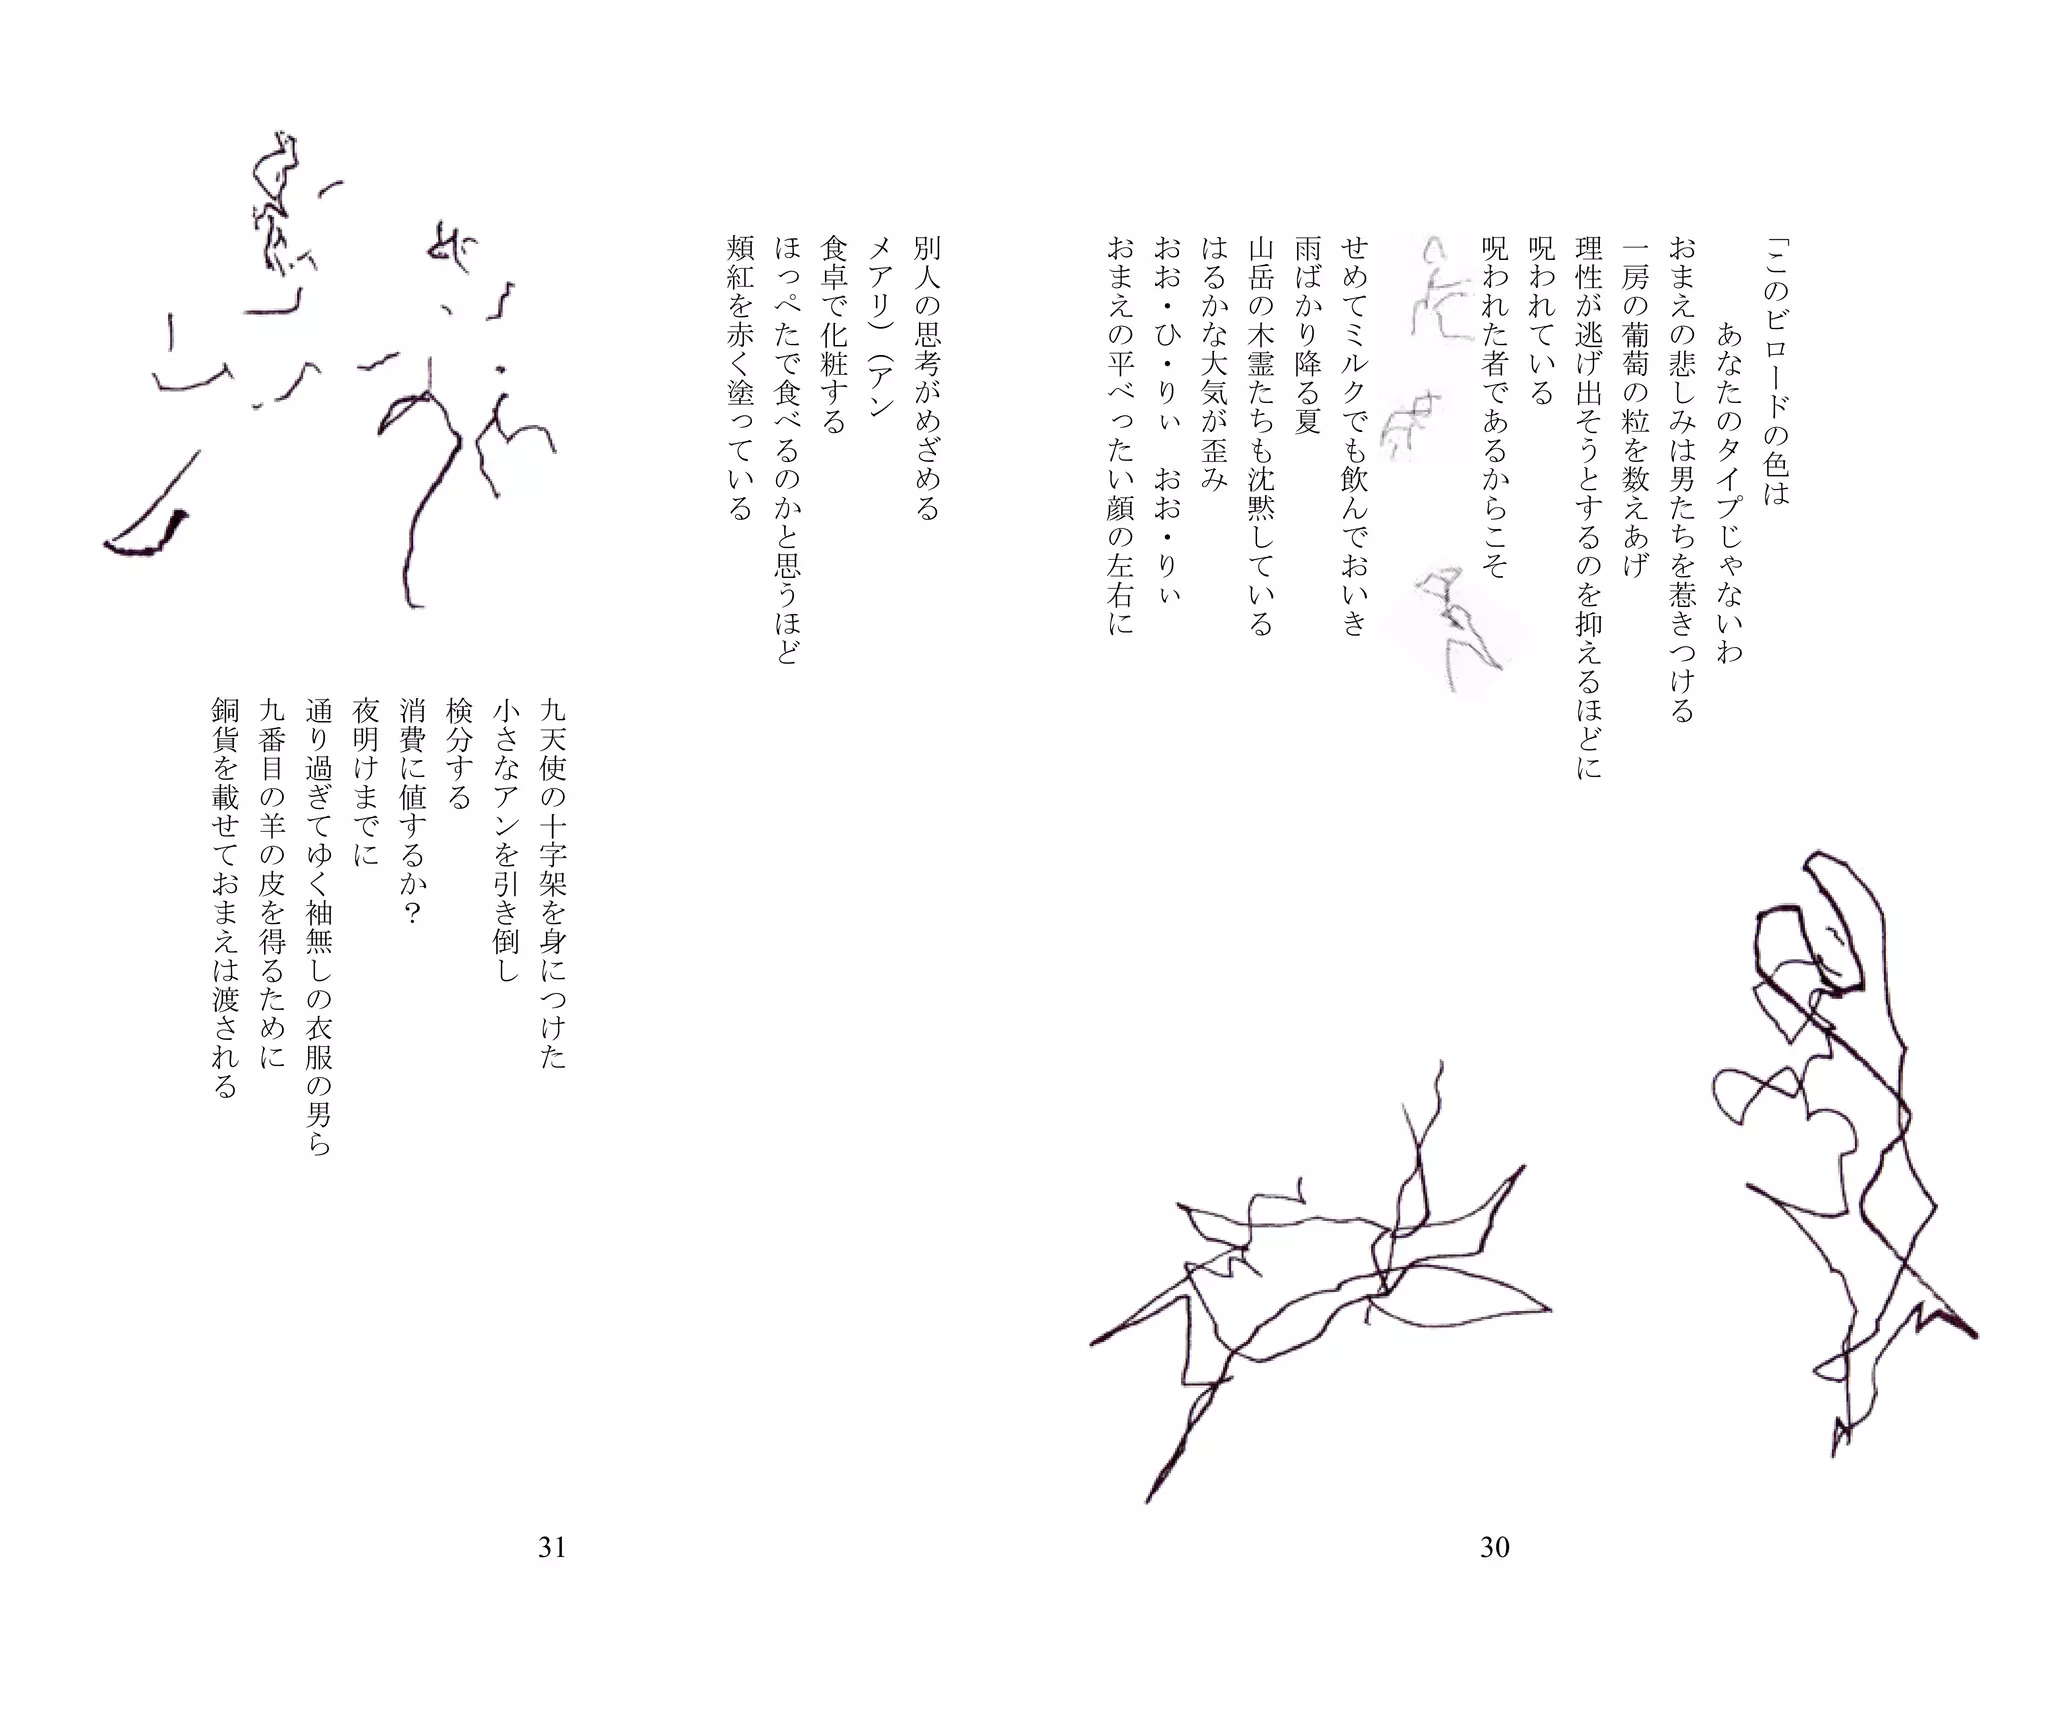 「このビロードの色は
あなたのタイプじゃないわ
おまえの悲しみは男たちを惹きつける
一房の葡萄の粒を数えあげ
理性が逃げ出そうとするのを抑えるほどに
呪われている
呪われた者であるからこそ
せめてミルクでも飲んでおいき
雨ばかり降る夏
山岳の木霊たちも沈黙している
はるかな大気が歪み
おお・ひ・りぃ　おお・りぃ
おまえの平べったい顔の左右に
30
別人の思考がめざめる
メアリ）（アン
食卓で化粧する
ほっぺたで食べるのかと思うほど
頬紅を赤く塗っている
九天使の十字架を身につけた
小さなアンを引き倒し
検分する
消費に値するか？
夜明けまでに
通り過ぎてゆく袖無しの衣服の男ら
九番目の羊の皮を得るために
銅貨を載せておまえは渡される
31